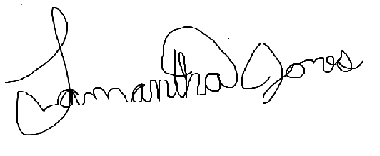 Samantha Jones